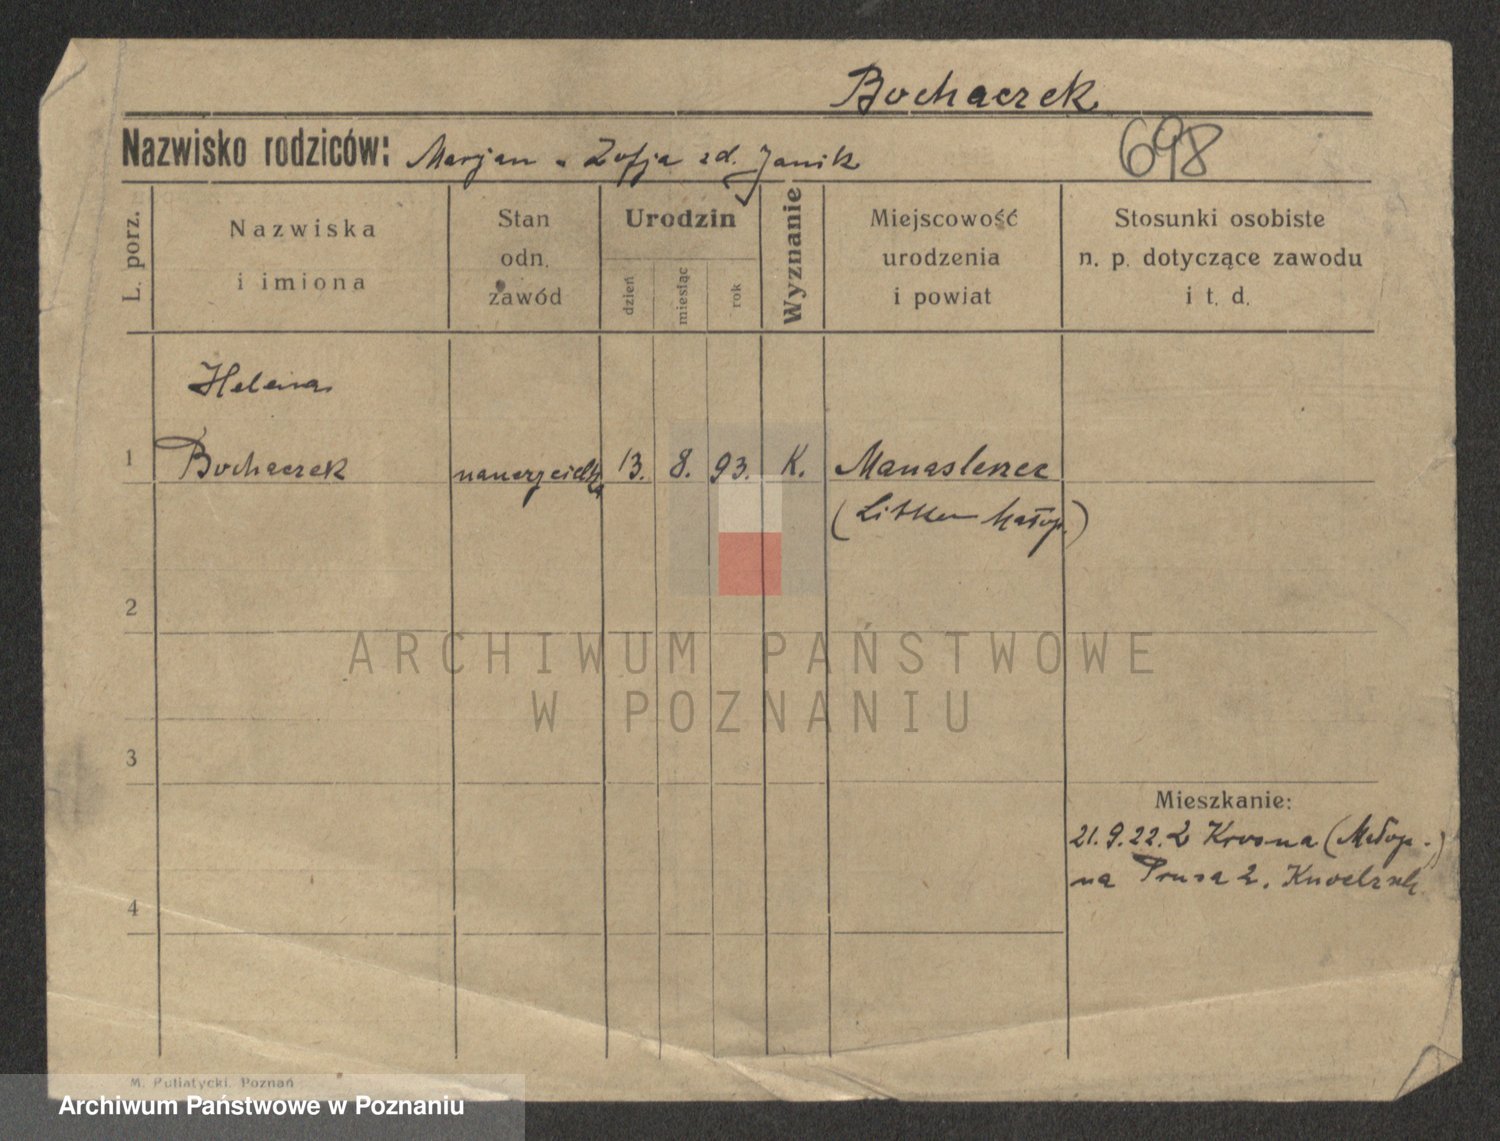 Bochaczek
Nazwisko rodziców: Marjan - Zofja zd. Janik
698
L. porz.
Nazwiska
i imiona
Stan
odn.
zawód
Urodzin
dzień
miesiąc
rok
Wyznanie
Miejscowość
urodzenia
i powiat
Stosunki osobiste
n. p. dotyczące zawodu
i t. d.
Helena
1 Bochaczek nauczycielka 13. 8. 93. K.
Małop.)
2
ARCHIWUM PAŃSTWOWE
W POZNANIU
3
Mieszkanie:
21.9.22. z Krosna (Małop.)
na Prusa 2.
4
M. Putiatycki, Poznań
Archiwum Państwowe w Poznaniu